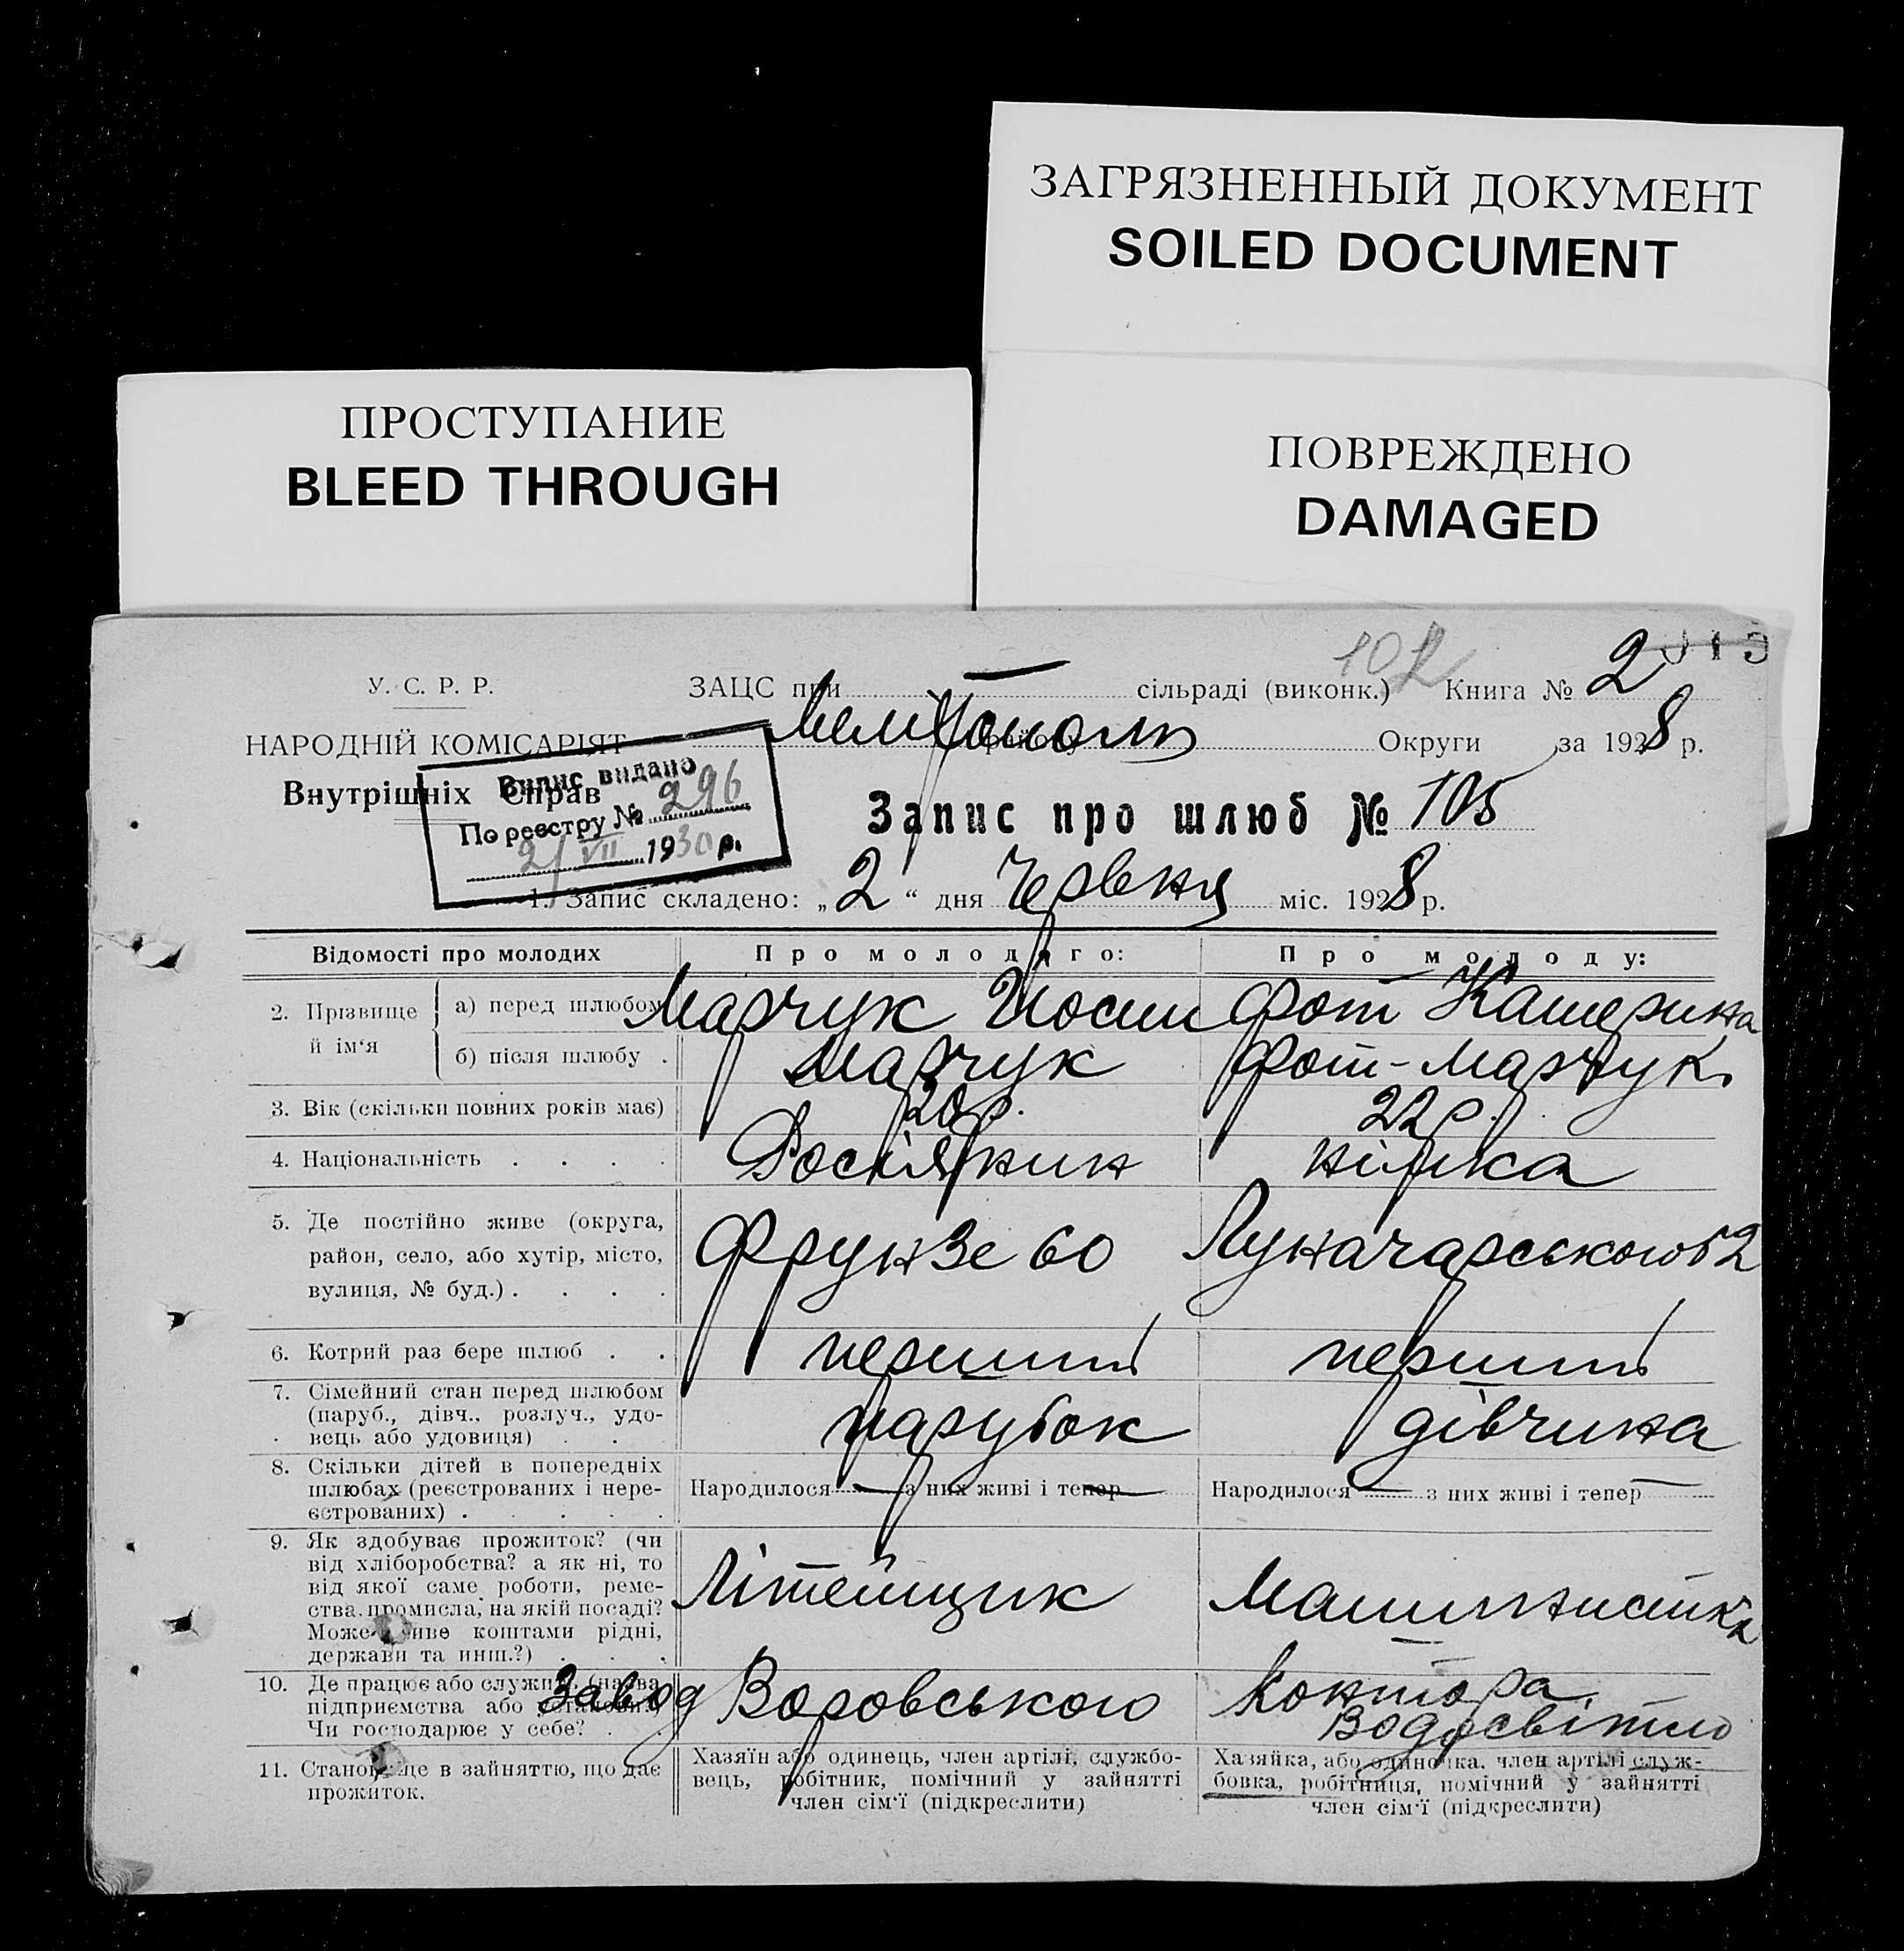 ЗАГРЯЗНЕННЫЙ ДОКУМЕНТ
SOILED DOCUMENT
ПРОСТУПАНИЕ
BLEED THROUGH
ПОВРЕЖДЕНО
DAMAGED
102
У. С. Р. Р.
ЗАЦС при — сільраді (виконк.) Книга № 2
НАРОДНІЙ КОМІСАРІЯТ
Мелітополь району Округи за 1928 р.
Внутрішніх Справ
Випис видано
По реєстру № 296
2/VII 1930 р.
Запис про шлюб № 105
1. Запис складено: „2“ дня Червня міс. 1928 р.
Відомості про молодих
Про молодого:
Про молоду:
2. Прізвище й ім‘я
а) перед шлюбом
Марчук Йосип
Фот Катерина
б) після шлюбу .
Марчук
Фот-Марчук.
3. Вік (скільки повних років має)
20 р.
22 р.
4. Національність . . . .
Росіянин
німка
5. Де постійно живе (округа,
район, село, або хутір, місто,
вулиця, № буд.) . . . .
Фрунзе 60
Луначарського 52
6. Котрий раз бере шлюб . .
перший
перший
7. Сімейний стан перед шлюбом
(паруб., дівч., розлуч., удо-
вець або удовиця) . .
парубок
дівчина
8. Скільки дітей в попередніх
шлюбах (реєстрованих і нере-
єстрованих) . . . . .
Народилося — з них живі і тепер —
Народилося — з них живі і тепер —
9. Як здобуває прожиток? (чи
від хліборобства? а як ні, то
від якої саме роботи, реме-
ства, промисла, на якій посаді?
Може живе коштами рідні,
держави та инш.?) . . .
Літейщик
Машиністка
10. Де працює або служить (назва
підприємства або установи)
Чи господарює у себе? . .
Завод Воровського
Контора
Водосвітло
11. Становище в зайняттю, що дає
прожиток.
Хазяїн або одинець, член артілі, службо-
вець, робітник, помічний у зайнятті
член сім‘ї (підкреслити)
Хазяйка, або одиночка, член артілі служ-
бовка, робітниця, помічний у зайнятті
член сім‘ї (підкреслити)